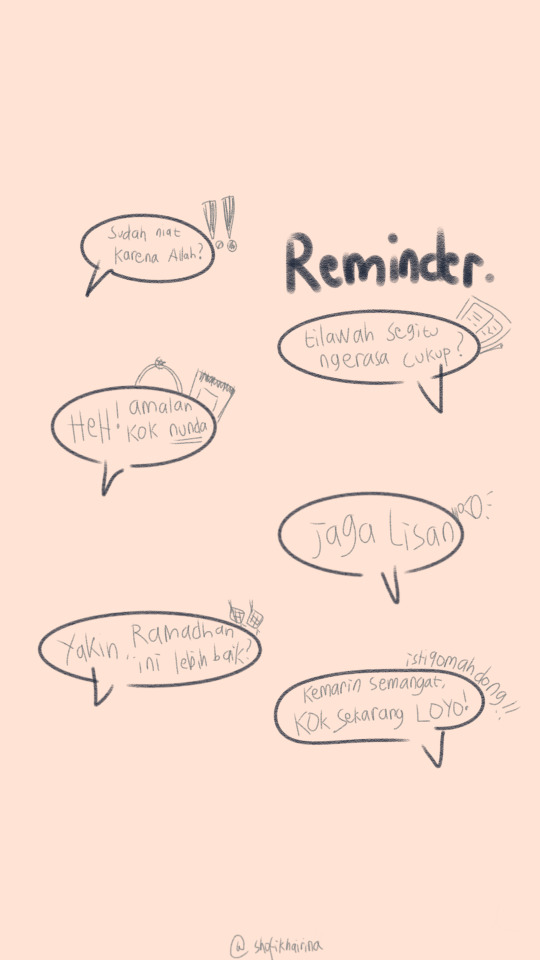 Sudah niat
karena Allah?
Reminder.
tilawah segitu
ngerasa cukup?
HeH! amalan
KOK nunda
jaga Lisan
Yakin.. Ramadhan
ini lebih baik?
istiqomah dong!!
Kemarin semangat,
KOK sekarang LOYO!
@shofikhairina